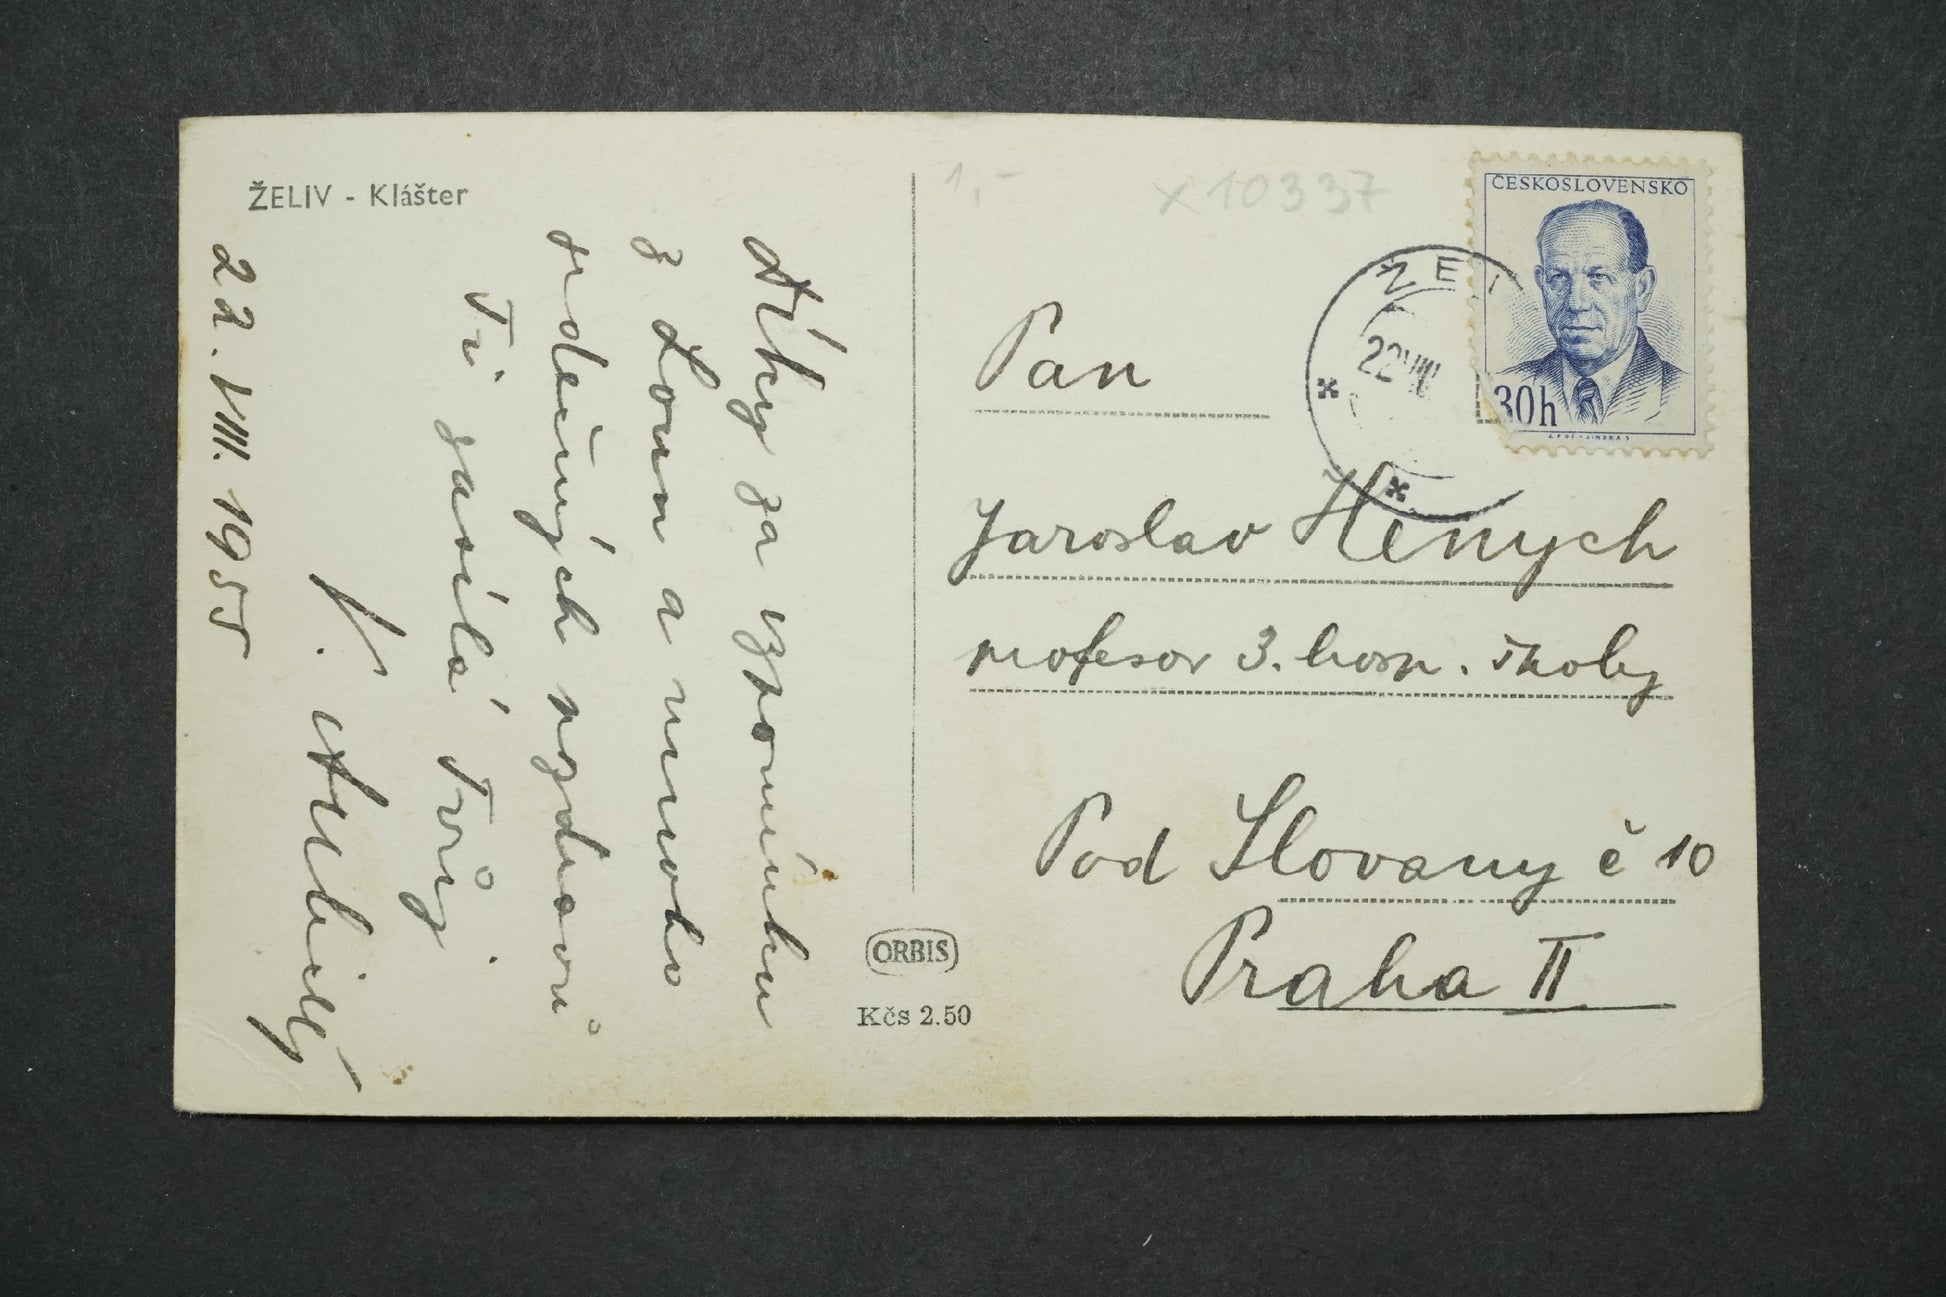 ŽELIV - Klášter
Díky za vzpomínku
z Loun a mnoho
srdečných pozdravů
Ti zasílá Tvůj
22. VIII. 1955
1,-
x 10337
ČESKOSLOVENSKO
30h
ŽELI
22 VIII
Pan
Jaroslav Henych
profesor 3. hosp. školy
Pod Slovany č 10
Praha II
ORBIS
Kčs 2.50